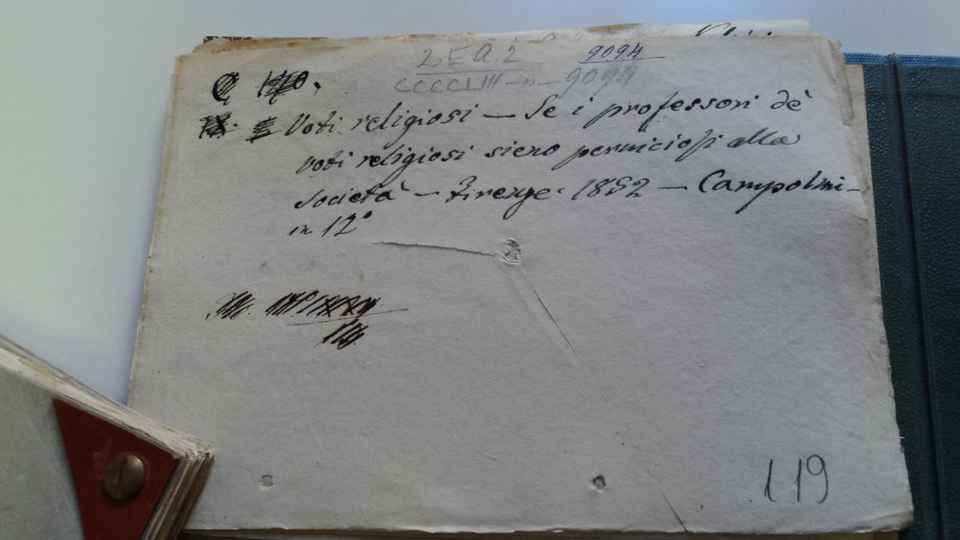 2. E A. 2 9094
CCCCLIII - n - 9094
Voti religiosi — Se i professori de'
voti religiosi sieno perniciosi alla
società — Firenze. 1852 — Campolmi —
in 12°
119